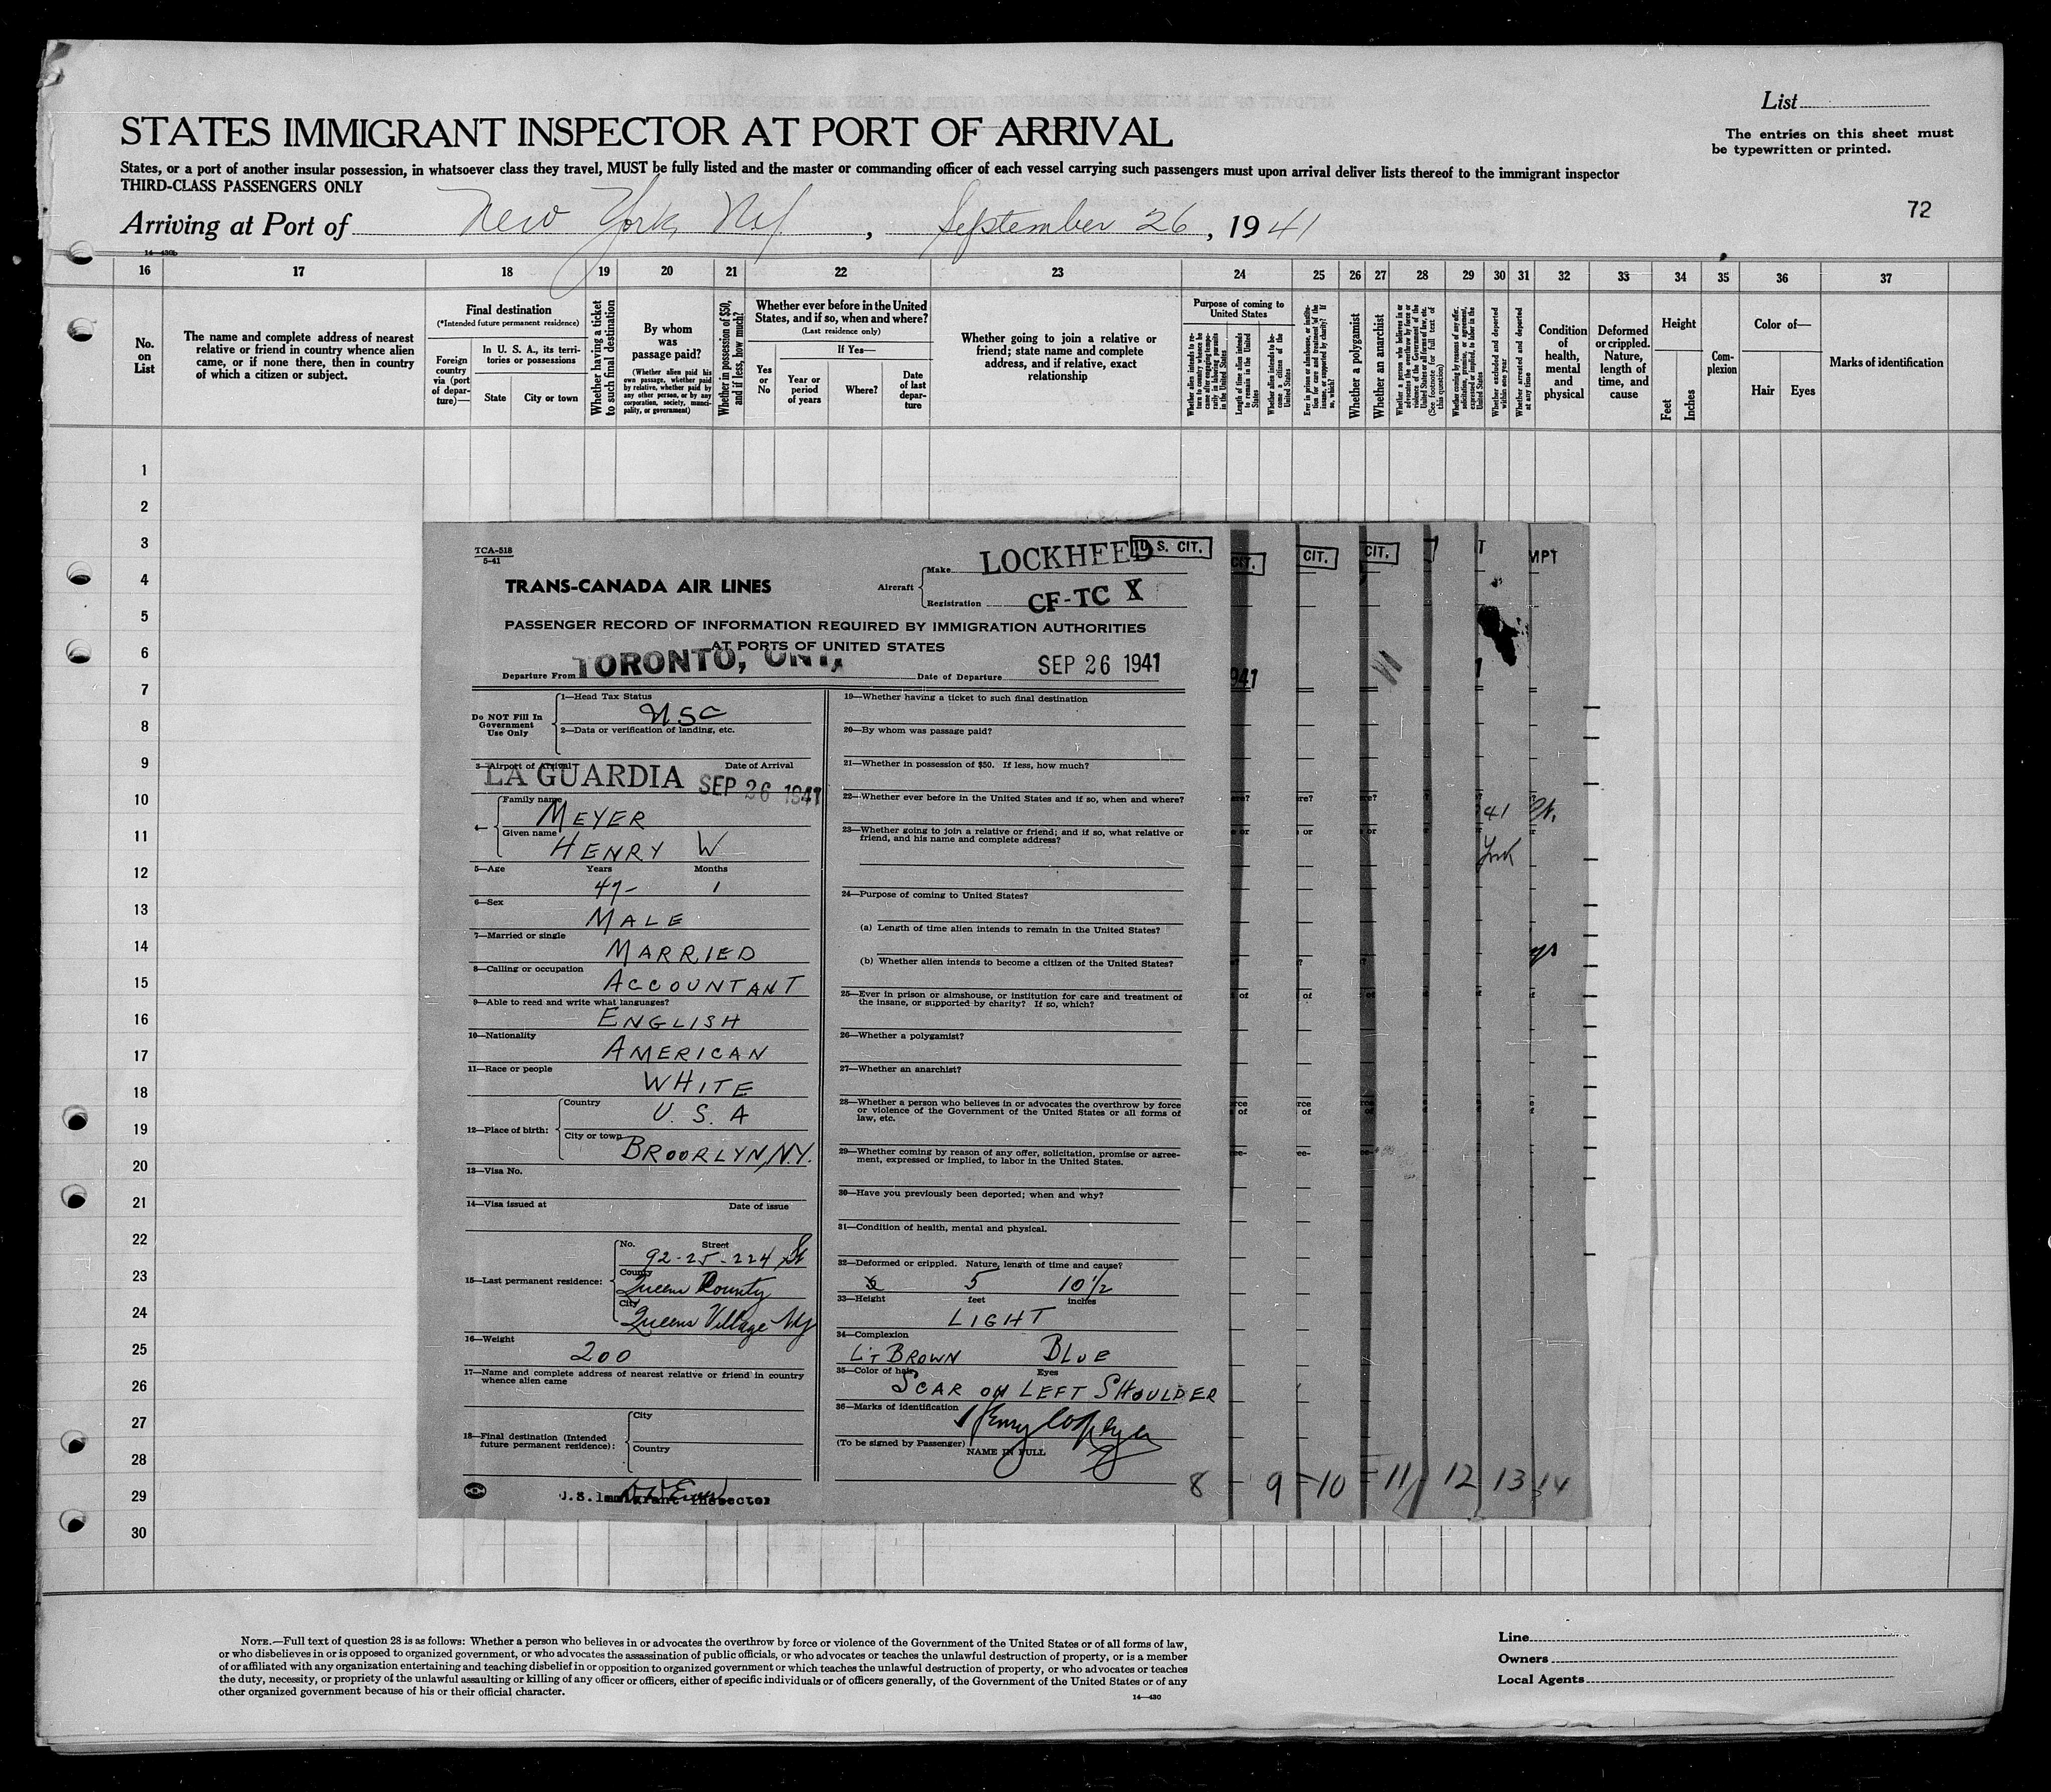 List
STATES IMMIGRANT INSPECTOR AT PORT OF ARRIVAL
The entries on this sheet must
be typewritten or printed.
States, or a port of another insular possession, in whatsoever class they travel, MUST be fully listed and the master or commanding officer of each vessel carrying such passengers must upon arrival deliver lists thereof to the immigrant inspector
THIRD-CLASS PASSENGERS ONLY
72
Arriving at Port of New York, N.Y. , September 26, 1941
14-430b
16 17 18 19 20 21 22 23 24 25 26 27 28 29 30 31 32 33 34 35 36 37
No.
on
List
The name and complete address of nearest
relative or friend in country whence alien
came, or if none there, then in country
of which a citizen or subject.
Final destination
(*Intended future permanent residence)
Foreign
country
via (port
of depar-
ture)—
In U. S. A., its terri-
tories or possessions
State City or town
Whether having a ticket
to such final destination
By whom
was
passage paid?
(Whether alien paid his
own passage, whether paid
by relative, whether paid by
any other person, or by any
corporation, society, munici-
pality, or government)
Whether in possession of $50,
and if less, how much?
Whether ever before in the United
States, and if so, when and where?
(Last residence only)
Yes
or
No
If Yes—
Year or
period
of years
Where?
Date
of last
depar-
ture
Whether going to join a relative or
friend; state name and complete
address, and if relative, exact
relationship
Purpose of coming to
United States
Whether alien intends to re-
turn to country whence he
came after engaging tempo-
rarily in laboring pursuits
in the United States
Length of time alien intends
to remain in the United
States
Whether alien intends to be-
come a citizen of the
United States
Ever in prison or almshouse, or institu-
tion for care and treatment of the
insane, or supported by charity? If
so, which?
Whether a polygamist
Whether an anarchist
Whether a person who believes in or
advocates the overthrow by force or
violence of the Government of the
United States or all forms of law, etc.
(See footnote for full text of
this question)
Whether coming by reason of any offer,
solicitation, promise, or agreement,
expressed or implied, to labor in the
United States
Whether excluded and deported
within one year
Whether arrested and deported
at any time
Condition
of
health,
mental
and
physical
Deformed
or crippled.
Nature,
length of
time, and
cause
Height
Feet
Inches
Com-
plexion
Color of—
Hair Eyes
Marks of identification
1
2
3
4
5
6
7
8
9
10
11
12
13
14
15
16
17
18
19
20
21
22
23
24
25
26
27
28
29
30
TCA-518
5-41
TRANS-CANADA AIR LINES
Aircraft
Make LOCKHEED
U. S. CIT.
CIT.
CIT.
CIT.
MPT
Registration CF-TC X
PASSENGER RECORD OF INFORMATION REQUIRED BY IMMIGRATION AUTHORITIES
AT PORTS OF UNITED STATES
Departure From TORONTO, ONT,
Date of Departure SEP 26 1941
941
Do NOT Fill In
Government
Use Only
1—Head Tax Status
USC
2—Data or verification of landing, etc.
3—Airport of Arrival Date of Arrival
LA GUARDIA SEP 26 1941
4—
Family name
MEYER
Given name
HENRY W
5—Age Years Months
47- 1
6—Sex
MALE
7—Married or single
MARRIED
8—Calling or occupation
ACCOUNTANT
9—Able to reed and write what languages?
ENGLISH
10—Nationality
AMERICAN
11—Race or people
WHITE
12—Place of birth:
Country
U. S. A
City or town
BROOKLYN, N.Y.
13—Visa No.
14—Visa issued at Date of issue
15—Last permanent residence:
No. Street
92-25-224 St
County
Queens County
City
Queens Village Ny
16—Weight
200
17—Name and complete address of nearest relative or friend in country
whence alien came
18—Final destination (Intended
future permanent residence):
City
Country
U.S. Immigrant Inspector
19—Whether having a ticket to such final destination
20—By whom was passage paid?
21—Whether in possession of $50. If less, how much?
22—Whether ever before in the United States and if so, when and where?
23—Whether going to join a relative or friend; and if so, what relative or
friend, and his name and complete address?
24—Purpose of coming to United States?
(a) Length of time alien intends to remain in the United States?
(b) Whether alien intends to become a citizen of the United States?
25—Ever in prison or almshouse, or institution for care and treatment of
the insane, or supported by charity? If so, which?
26—Whether a polygamist?
27—Whether an anarchist?
28—Whether a person who believes in or advocates the overthrow by force
or violence of the Government of the United States or all forms of
law, etc.
29—Whether coming by reason of any offer, solicitation, promise or agree-
ment, expressed or implied, to labor in the United States.
30—Have you previously been deported; when and why?
31—Condition of health, mental and physical.
32—Deformed or crippled. Nature, length of time and cause?
5 10 1/2
33—Height feet inches
LIGHT
34—Complexion
LIT BROWN BLUE
35—Color of hair Eyes
SCAR ON LEFT SHOULDER
36—Marks of identification
(To be signed by Passenger)
NAME IN FULL
8 - 9 - 10 - 11 12 13 14
41 St.
York
NOTE.—Full text of question 28 is as follows: Whether a person who believes in or advocates the overthrow by force or violence of the Government of the United States or of all forms of law,
or who disbelieves in or is opposed to organized government, or who advocates the assassination of public officials, or who advocates or teaches the unlawful destruction of property, or is a member
of or affiliated with any organization entertaining and teaching disbelief in or opposition to organized government or which teaches the unlawful destruction of property, or who advocates or teaches
the duty, necessity, or propriety of the unlawful assaulting or killing of any officer or officers, either of specific individuals or of officers generally, of the Government of the United States or of any
other organized government because of his or their official character.
14-430
Line
Owners
Local Agents